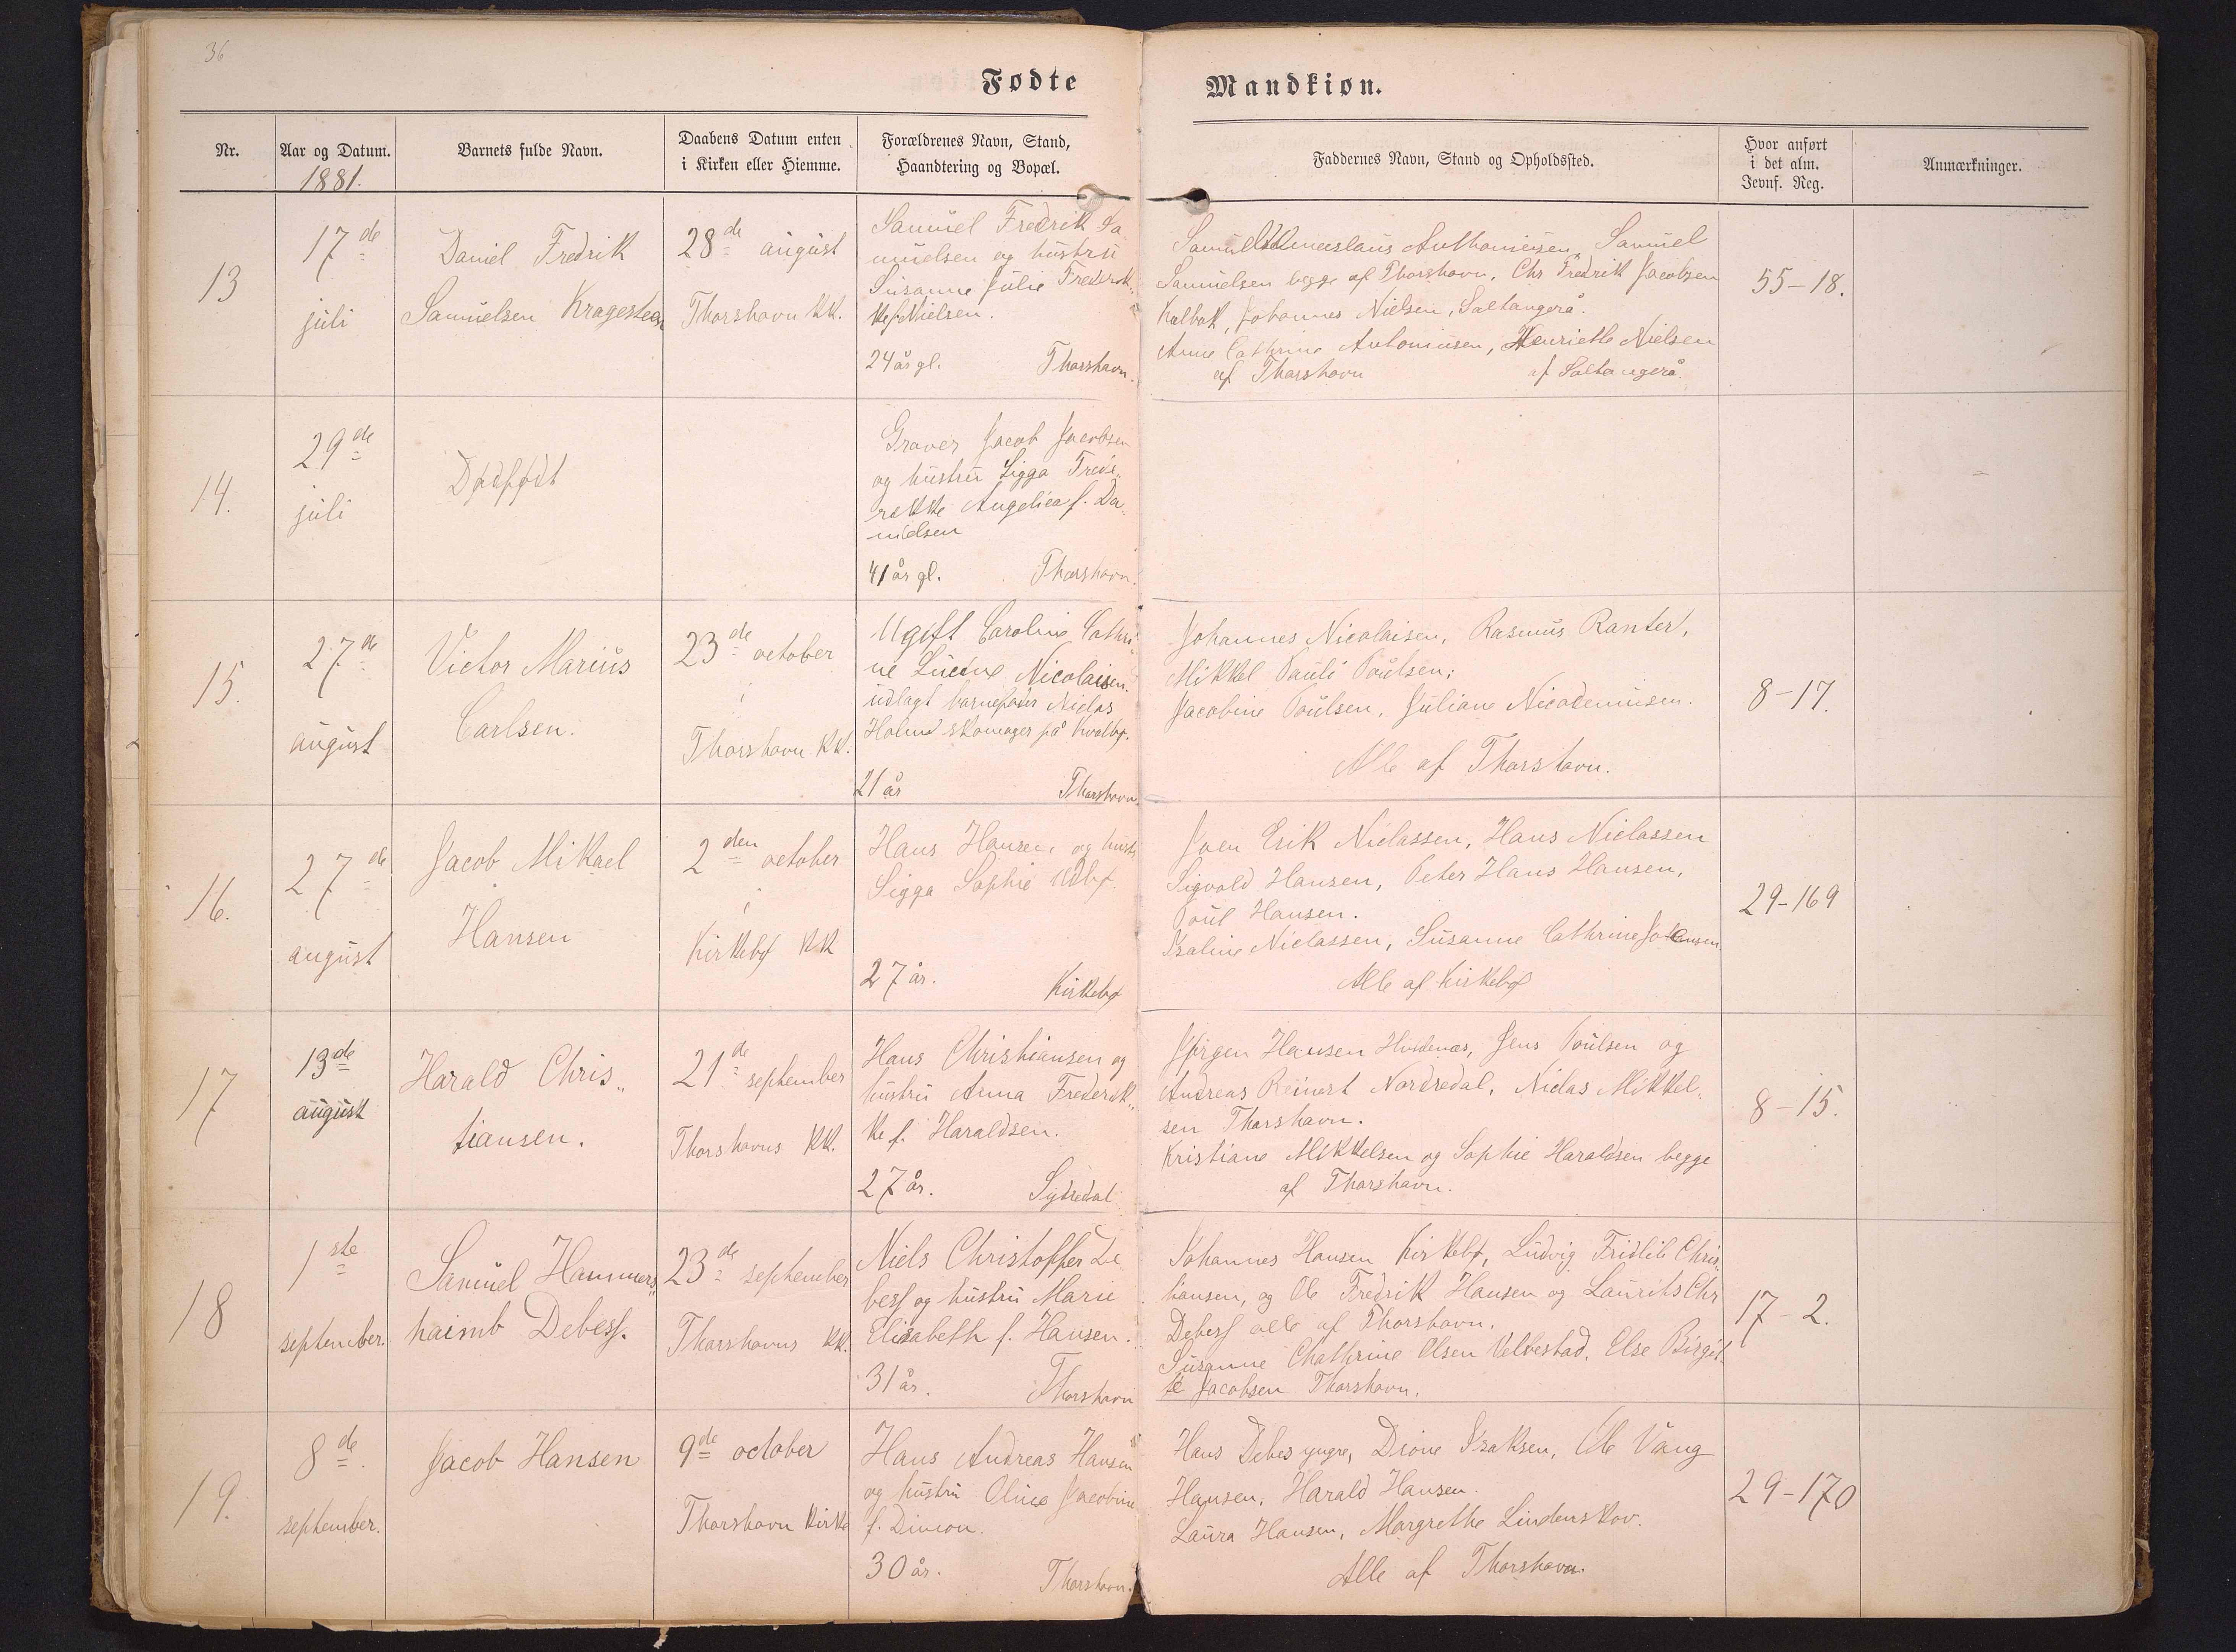 36
Fødte
Mandkiøn.
Nr.
Aar og Datum.
1881.
Barnets fulde Navn.
Daabens Datum enten
i Kirken eller Hiemme.
Forældrenes Navn, Stand,
Haandtering og Bopæl.
Faddernes Navn, Stand og Opholdssted.
Hvor anført
i det alm.
Jevnf. Reg.
Anmærkninger.
13
17de
juli
Daniel Fredrik
Samuelsen Kragesteen
28de august
Thorshavn KK.
Samuel Fredrik Sa
muelsen og hustru
Susanne Julie Fredrik
ke f Nielsen.
24 år gl. Thorshavn.
Samuel Anthoniusen, Samuel
Samuelsen begge af Thorshavn, Chr Fredrik Jacobsen
Kalbak, Johannes Nielsen, Saltangerå.
Anne Cathrine Antoniusen, Henriette Nielsen
af Thorshavn af Saltangerå.
55-18.
14.
29de
juli
Dødfødt
Graver Jacob Jacobsen
og hustru Sigga Frede-
rikke Angelica f. Da-
nielsen
41 år gl. Thorshavn.
15.
27de
august
Victor Marius
Carlsen.
23de october
i
Thorshavn KK.
Ugift Caroline Cathri-
ne Lucine Nicolaisen.
udlagt barnefader Niclas
Holm skomager på Kvalbø.
21 år Thorshavn.
Johannes Nicolaisen, Rasmus Ranter,
Mikkel Pauli Poulsen;
Jacobine Poulsen, Juliane Nicodemusen.
Alle af Thorshavn.
8-17.
16.
27de
august
Jacob Mikael
Hansen
2den october
i
Kirkebø KK
Hans Hansen og hustr
Sigga Sophie
27 år. Kirkebø
Joen Erik Niclassen, Hans Niclassen
Sigvald Hansen, Peter Hans Hansen,
Poul Hansen.
Niclassen, Susanne Cathrine Johansen
Alle af Kirkebø
29-169
17
13de
august
Harald Chris„
tiansen.
21de september
Thorshavns KK.
Hans Christiansen og
hustru Anna Frederik„
ke f. Haraldsen.
27 år. Sydredal
Jørgen Hansen Hvidenæs, Jens Poulsen og
Andreas Reinert Nordredal, Niclas Mikkel-
sen Thorshavn.
Kristiane Mikkelsen og Sophie Haraldsen begge
af Thorshavn.
8-15.
18
1ste
september.
Samuel Hammers„
haimb Debess.
23de september
Thorshavns KK.
Niels Christoffer De
bess og hustru Marie
Elisabeth f. Hansen.
31 år. Thorshavn
Johannes Hansen Kirkebø, Ludvig Fridlib Chris-
tiansen, og Ole Fredrik Hansen og Laurits Chr
Debess alle af Thorshavn.
Susanne Chathrine Olsen Velbestad, Else Birgit-
te Jacobsen Thorshavn.
17-2.
19.
8de
september.
Jacob Hansen
9de october
Thorshavn Kirke
Hans Andreas Hansen
og hustru Oline Jacobine
f. Dimon.
30 år. Thorshavn.
Hans Debes yngre, Dione Isaksen, Ole Vang
Hansen, Harald Hansen.
Laura Hansen, Margrethe Lindenskov.
Alle af Thorshavn.
29-170